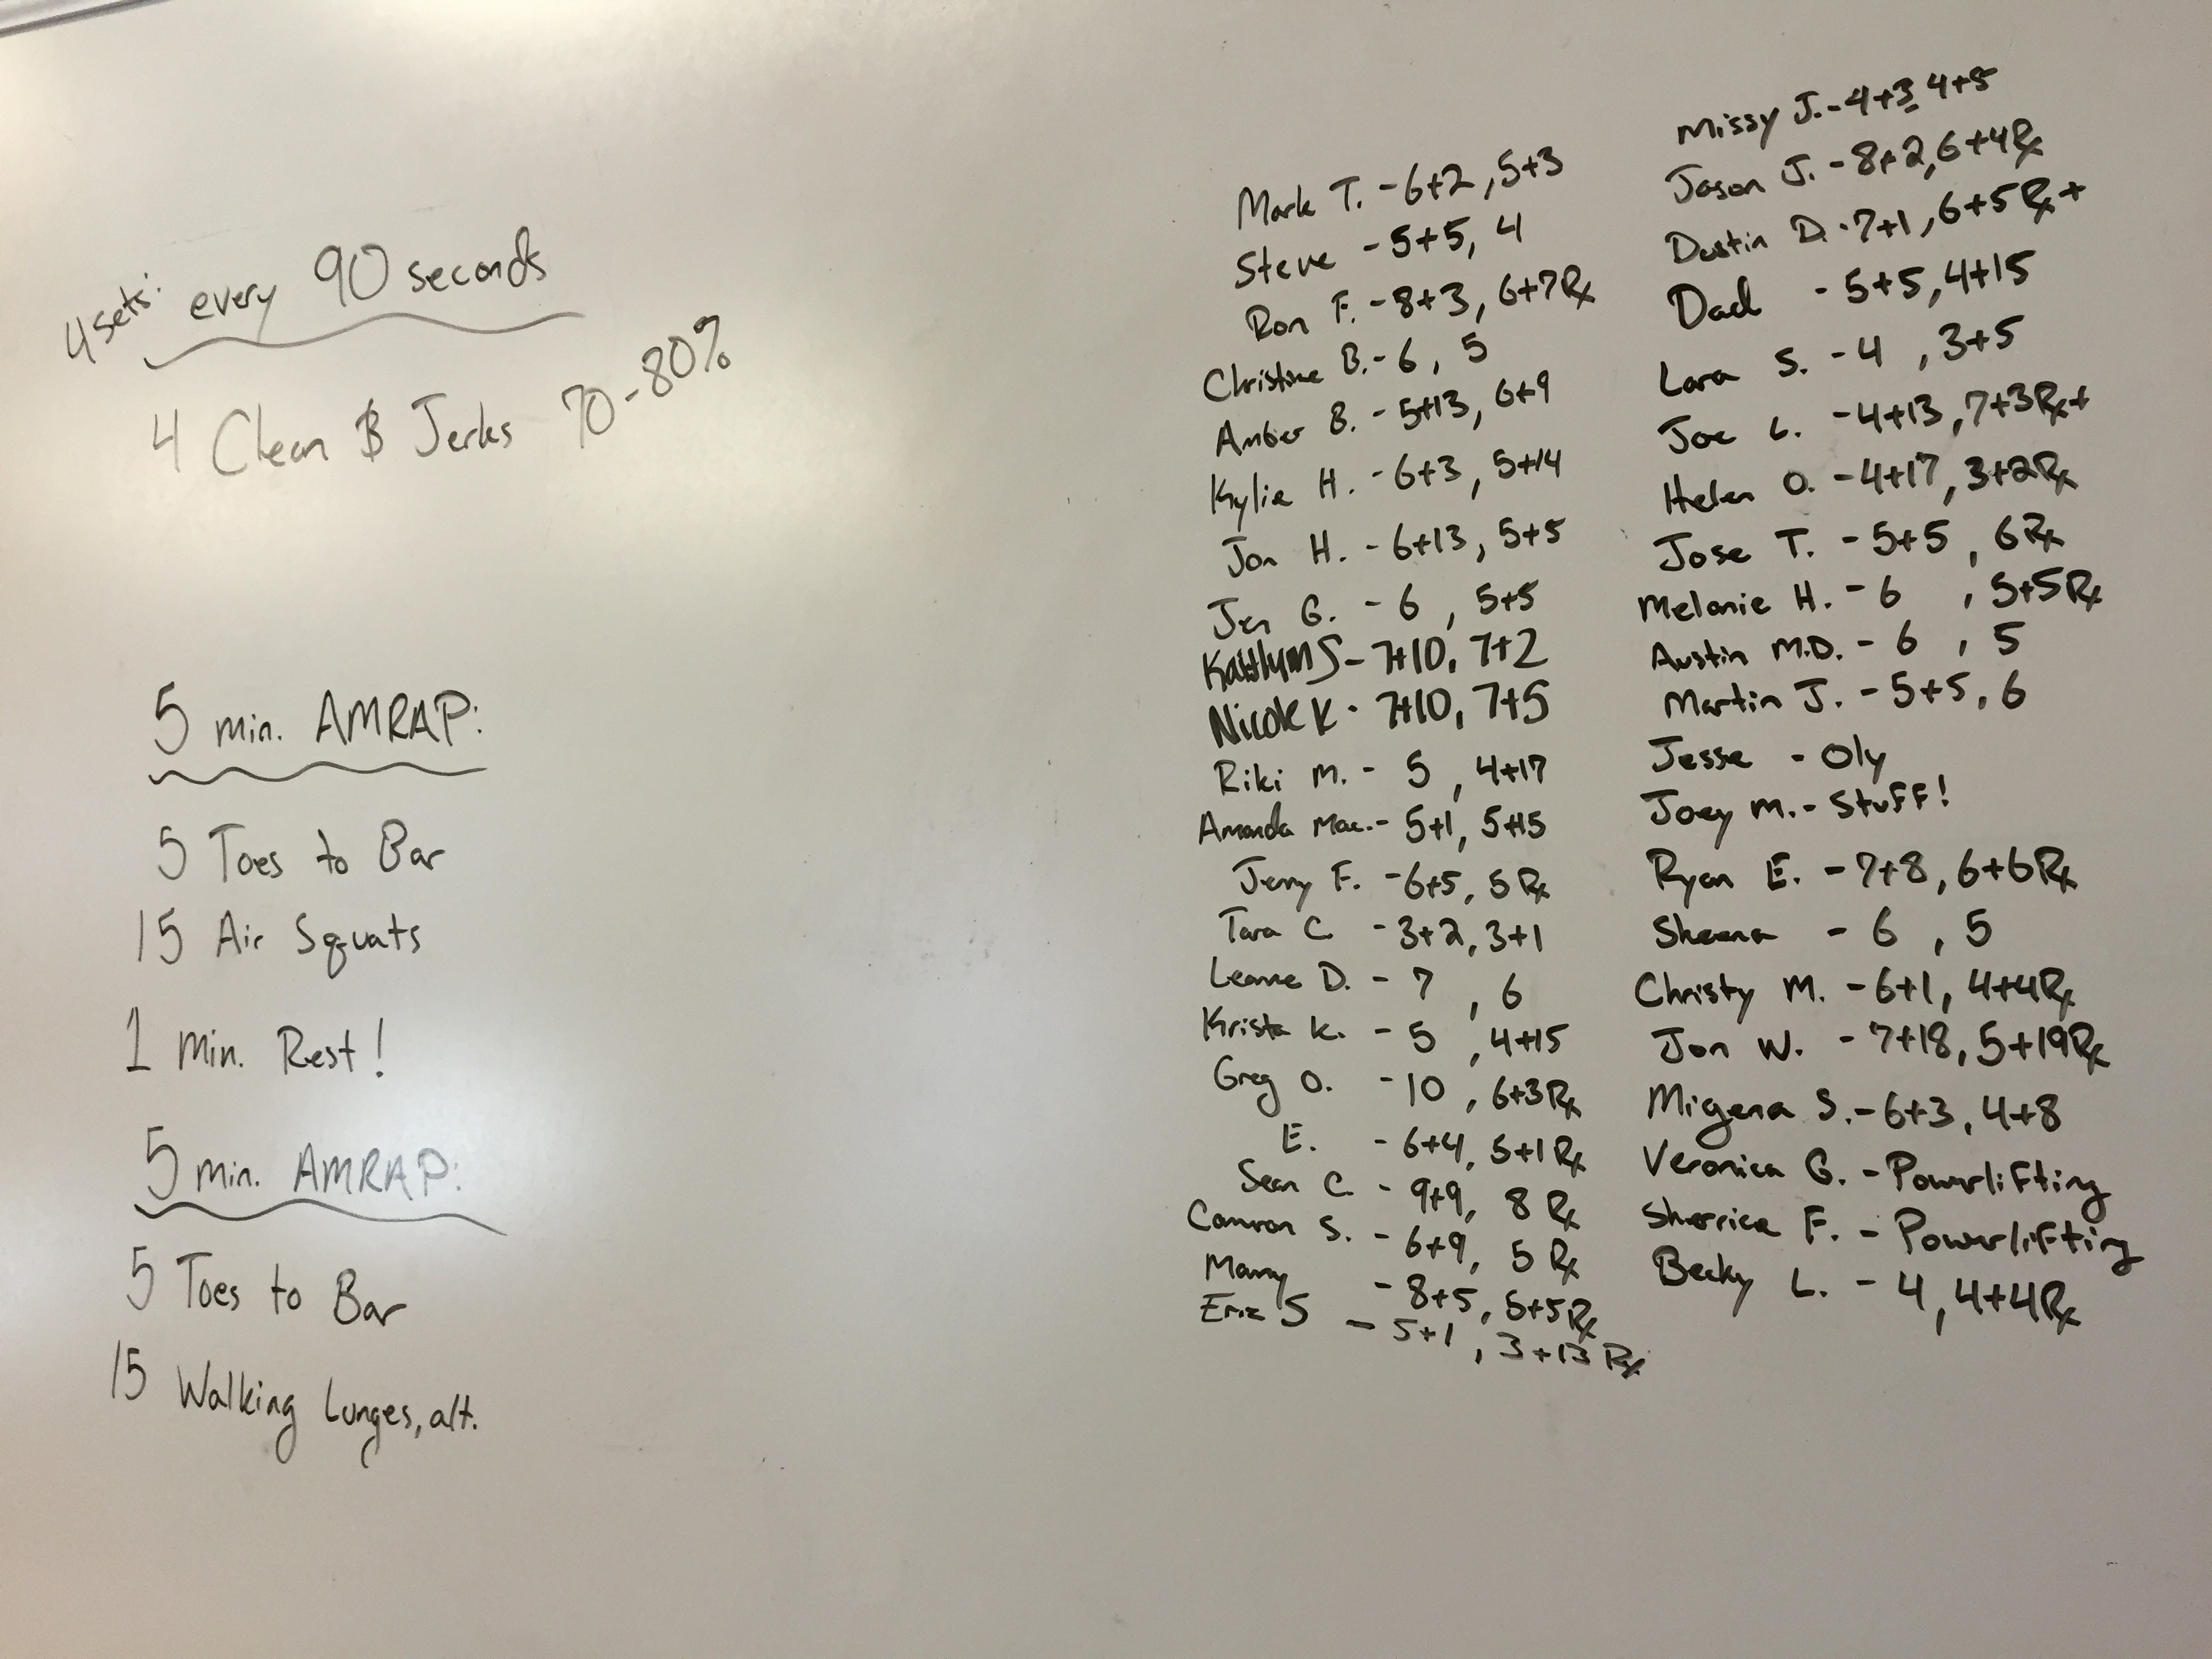 4 sets: every 90 seconds
4 Clean & Jerks 70-80%
5 min. AMRAP:
5 Toes to Bar
15 Air Squats
1 Min. Rest!
5 min. AMRAP:
5 Toes to Bar
15 Walking Lunges, alt.
Mark T. - 6+2, 5+3
Steve - 5+5, 4
Ron F. - 8+3, 6+7 Rx
Christine B. - 6, 5
Amber B. - 5+13, 6+9
Kylie H. - 6+3, 5+14
Jon H. - 6+13, 5+5
Jen G. - 6, 5+5
Kaitlyn S - 7+10, 7+2
Nicole K - 7+10, 7+5
Riki M. - 5, 4+17
Amanda Mac. - 5+1, 5+15
Jerry F. - 6+5, 5 Rx
Tara C - 3+2, 3+1
Leanne D. - 7, 6
Krista K. - 5, 4+15
Greg O. - 10, 6+3 Rx
E. - 6+4, 5+1 Rx
Sean C. - 9+9, 8 Rx
Camron S. - 6+9, 5 Rx
Manny - 8+5, 5+5 Rx
Eric S - 5+1, 3+13 Rx
Missy J. - 4+3, 4+5
Jason J. - 8+2, 6+4 Rx
Dustin D. - 7+1, 6+5 Rx+
Dad - 5+5, 4+15
Lara S. - 4, 3+5
Joe L. - 4+13, 7+3 Rx+
Helen O. - 4+17, 3+2 Rx
Jose T. - 5+5, 6 Rx
Melanie H. - 6, 5+5 Rx
Austin M.D. - 6, 5
Martin J. - 5+5, 6
Jesse - Oly
Joey M. - Stuff!
Ryan E. - 7+8, 6+6 Rx
Sheena - 6, 5
Christy M. - 6+1, 4+4 Rx
Jon W. - 7+18, 5+19 Rx
Migena S. - 6+3, 4+8
Veronica G. - Powerlifting
Sherrica F. - Powerlifting
Becky L. - 4, 4+4 Rx